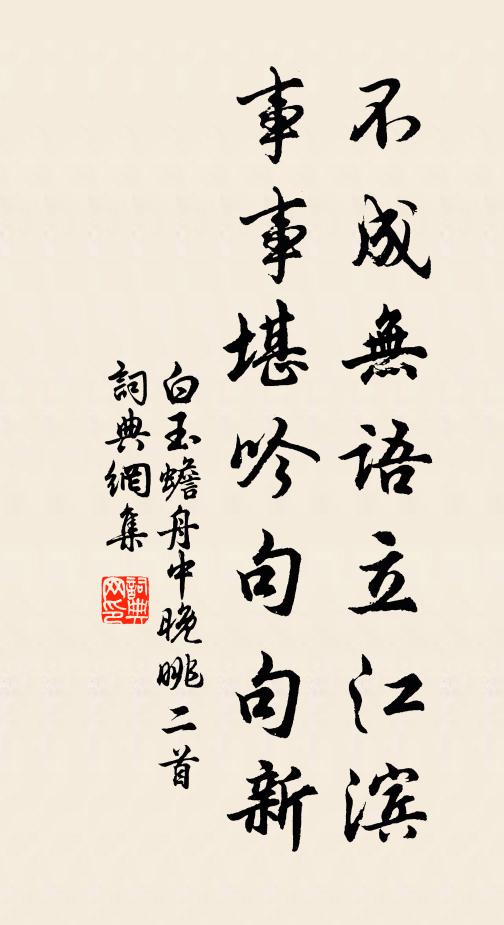 不成無語立江滨
事事堪吟句句新
白玉蟾舟中晚眺二首
詞典網集
詞典網印